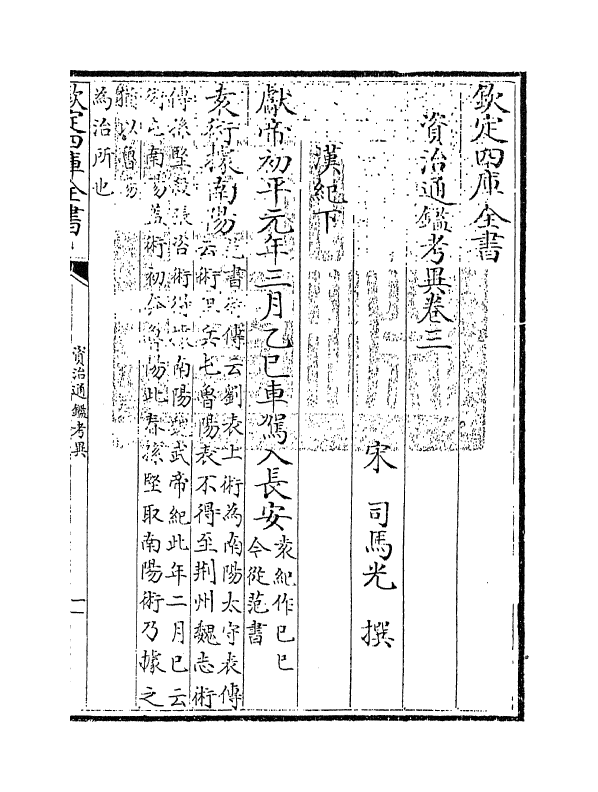 欽定四庫全書
資治通鑑考異卷三
宋 司馬光 撰
漢紀下
獻帝初平元年三月乙巳車駕入長安
袁紀作己巳
今從范書
袁術據南陽
范書術傳云劉表上術為南陽太守表傳
云術阻兵屯魯陽表不得至荆州魏志術
傳孫堅殺張咨術得據南陽魏武帝紀此年二月已云
術屯南陽蓋術初奔魯陽此春孫堅取南陽術乃據之
猶以魯陽
為治所也
欽定四庫全書
資治通鑑考異
一